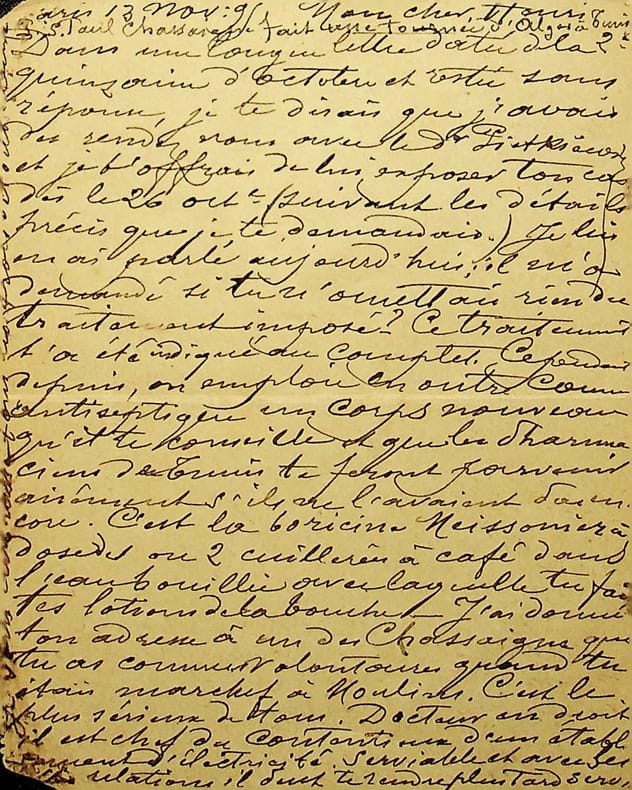 Paris 13 Nov. 9 Mon cher Henri
Paul Chassaigne fait une tournée d'Alger à Tunis
Dans une longue lettre datée de la 2e
quinzaine d'octobre et restée sans
réponse, je te disais que j'avais
des rendez vous avec le Dr
et je t'offrais de lui exposer ton cas
dès le 26 octe (suivant les détails
précis que je te demandais.) Je lui
en ai parlé aujourd'hui; il m'a
demandé si tu n'omettais rien du
traitement imposé? Ce traitement
t'a été indiqué au complet. Cependant
depuis, on emploie en outre comme
antiseptique un corps nouveau
qu'il te conseille et que les pharma
ciens de Tunis te feront parvenir
aisément s'ils ne l'avaient pas en-
core. C'est la boricine Meissonier à
dose de 1 ou 2 cuillerées à café dans
l'eau bouillie avec laquelle tu fais
tes lotions de la bouche. J'ai donné
ton adresse à un des Chassaigne que
tu as connus volontaires quand tu
étais marchef à Moulins. C'est le
plus sérieux de tous. Docteur en droit
il est chef du contentieux d'un établ
ssement d'électricité. Serviable et avec ses
relations il peut te rendre plus tard serv.